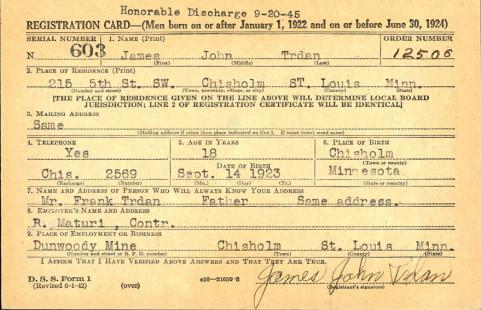 Honorable Discharge 9-20-45
REGISTRATION CARD—(Men born on or after January 1, 1922 and on or before June 30, 1924)
SERIAL NUMBER 1. NAME (Print) ORDER NUMBER
N 603 James John Trdan 12506
(First) (Middle) (Last)
2. PLACE OF RESIDENCE (Print)
215 5th St. SW. Chisholm ST. Louis Minn.
(Number and street) (Town, township, village, or city) (County) (State)
[THE PLACE OF RESIDENCE GIVEN ON THE LINE ABOVE WILL DETERMINE LOCAL BOARD
JURISDICTION; LINE 2 OF REGISTRATION CERTIFICATE WILL BE IDENTICAL]
3. MAILING ADDRESS
Same
(Mailing address if other than place indicated on line 2. If same insert word same)
4. TELEPHONE 5. AGE IN YEARS 6. PLACE OF BIRTH
Yes 18 Chisholm
DATE OF BIRTH (Town or county)
Chis. 2569 Sept. 14 1923 Minnesota
(Exchange) (Number) (Mo.) (Day) (Yr.) (State or country)
7. NAME AND ADDRESS OF PERSON WHO WILL ALWAYS KNOW YOUR ADDRESS
Mr. Frank Trdan Father Same address.
8. EMPLOYER'S NAME AND ADDRESS
R. Maturi, Contr.
9. PLACE OF EMPLOYMENT OR BUSINESS
Dunwoody Mine Chisholm St. Louis Minn.
(Number and street or R. F. D. number) (Town) (County) (State)
I AFFIRM THAT I HAVE VERIFIED ABOVE ANSWERS AND THAT THEY ARE TRUE.
D. S. S. Form 1
(Revised 6-1-42) (over) e16—21630-2 James John Trdan
(Registrant's signature)